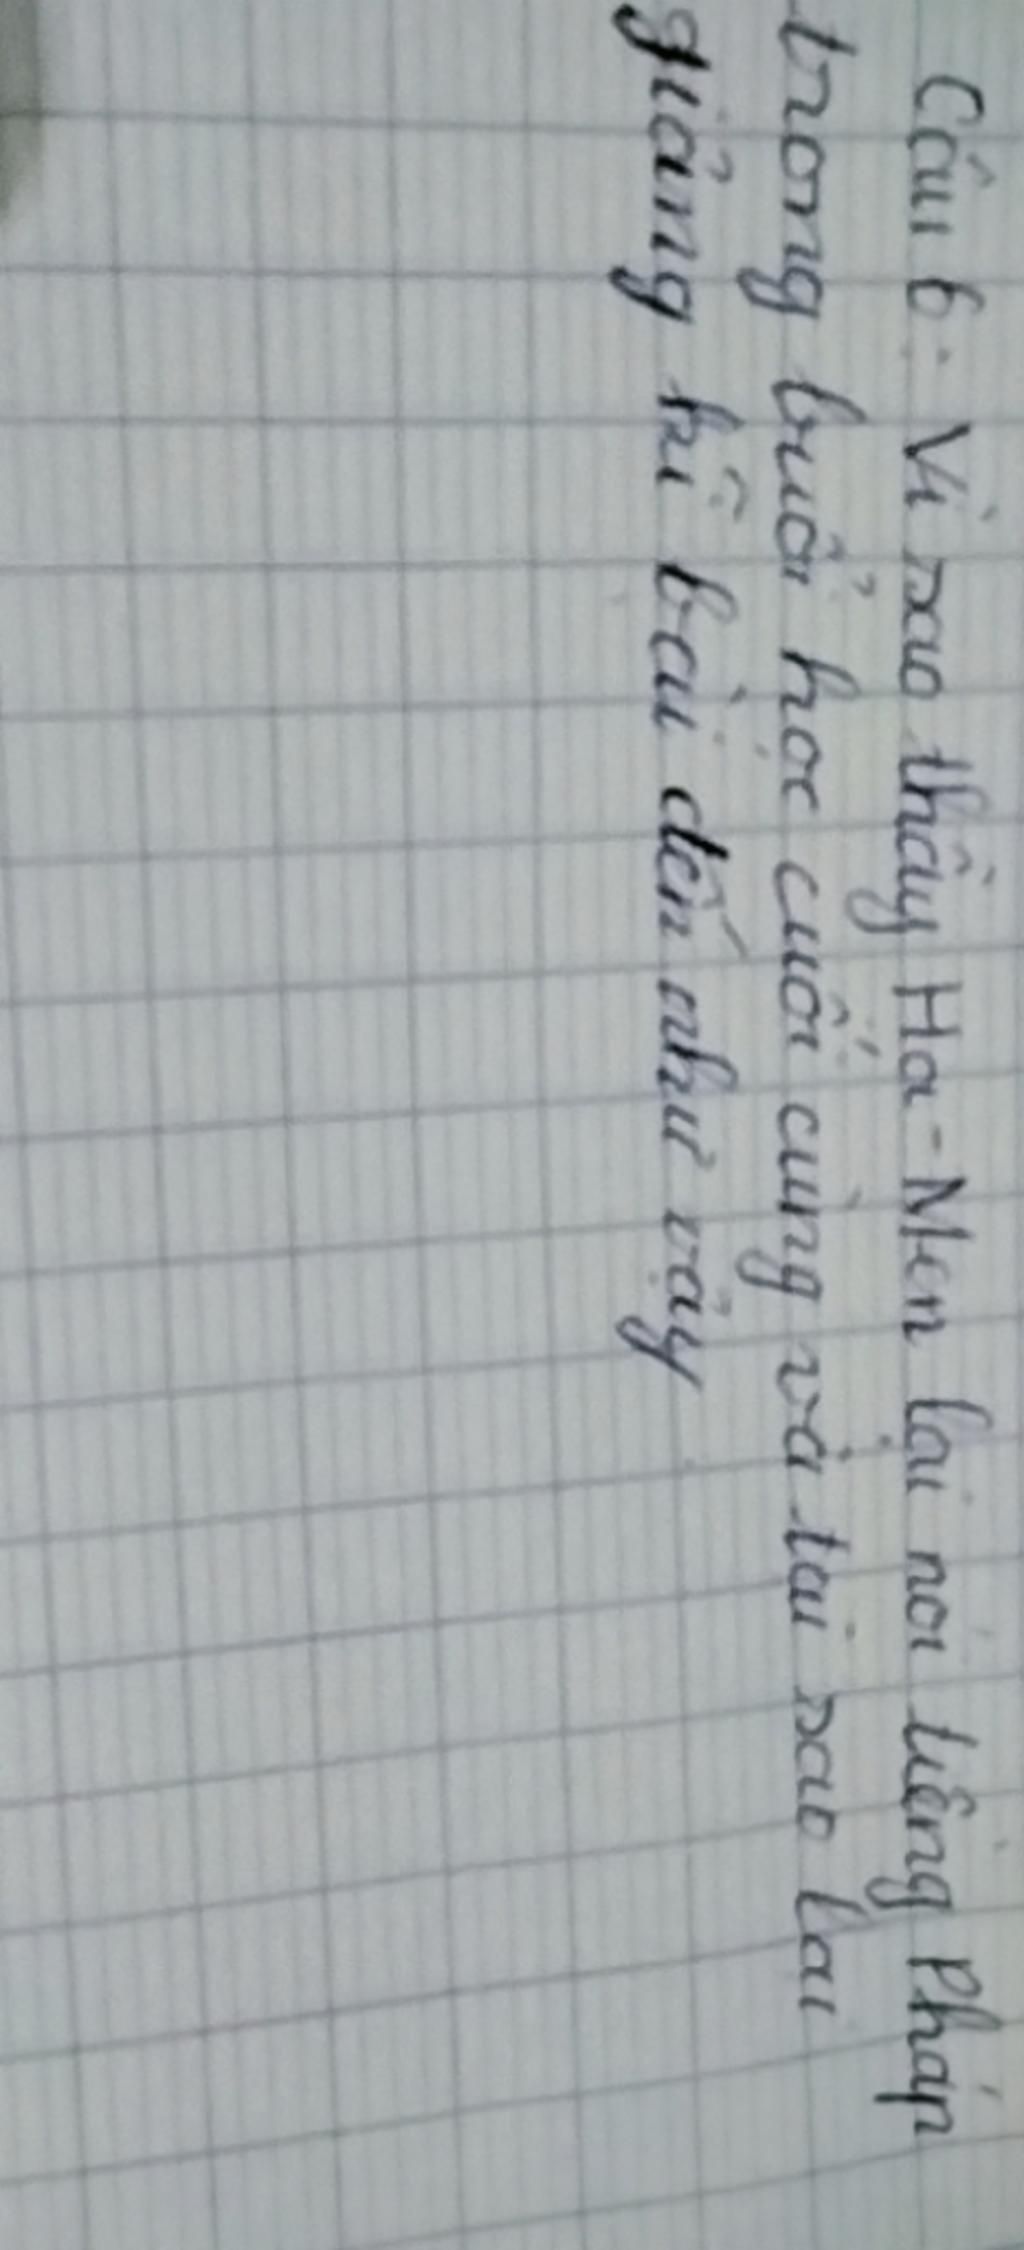 Câu 6: Vì sao thầy Ha-Men lại nói tiếng Pháp
trong buổi học cuối cùng và tại sao lại
giảng kĩ bài đến như vậy